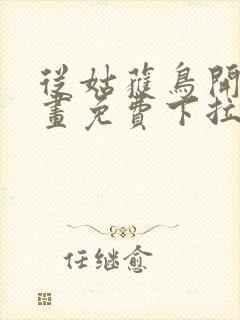 從姑獲鳥開
畫免費下拉
任继愈